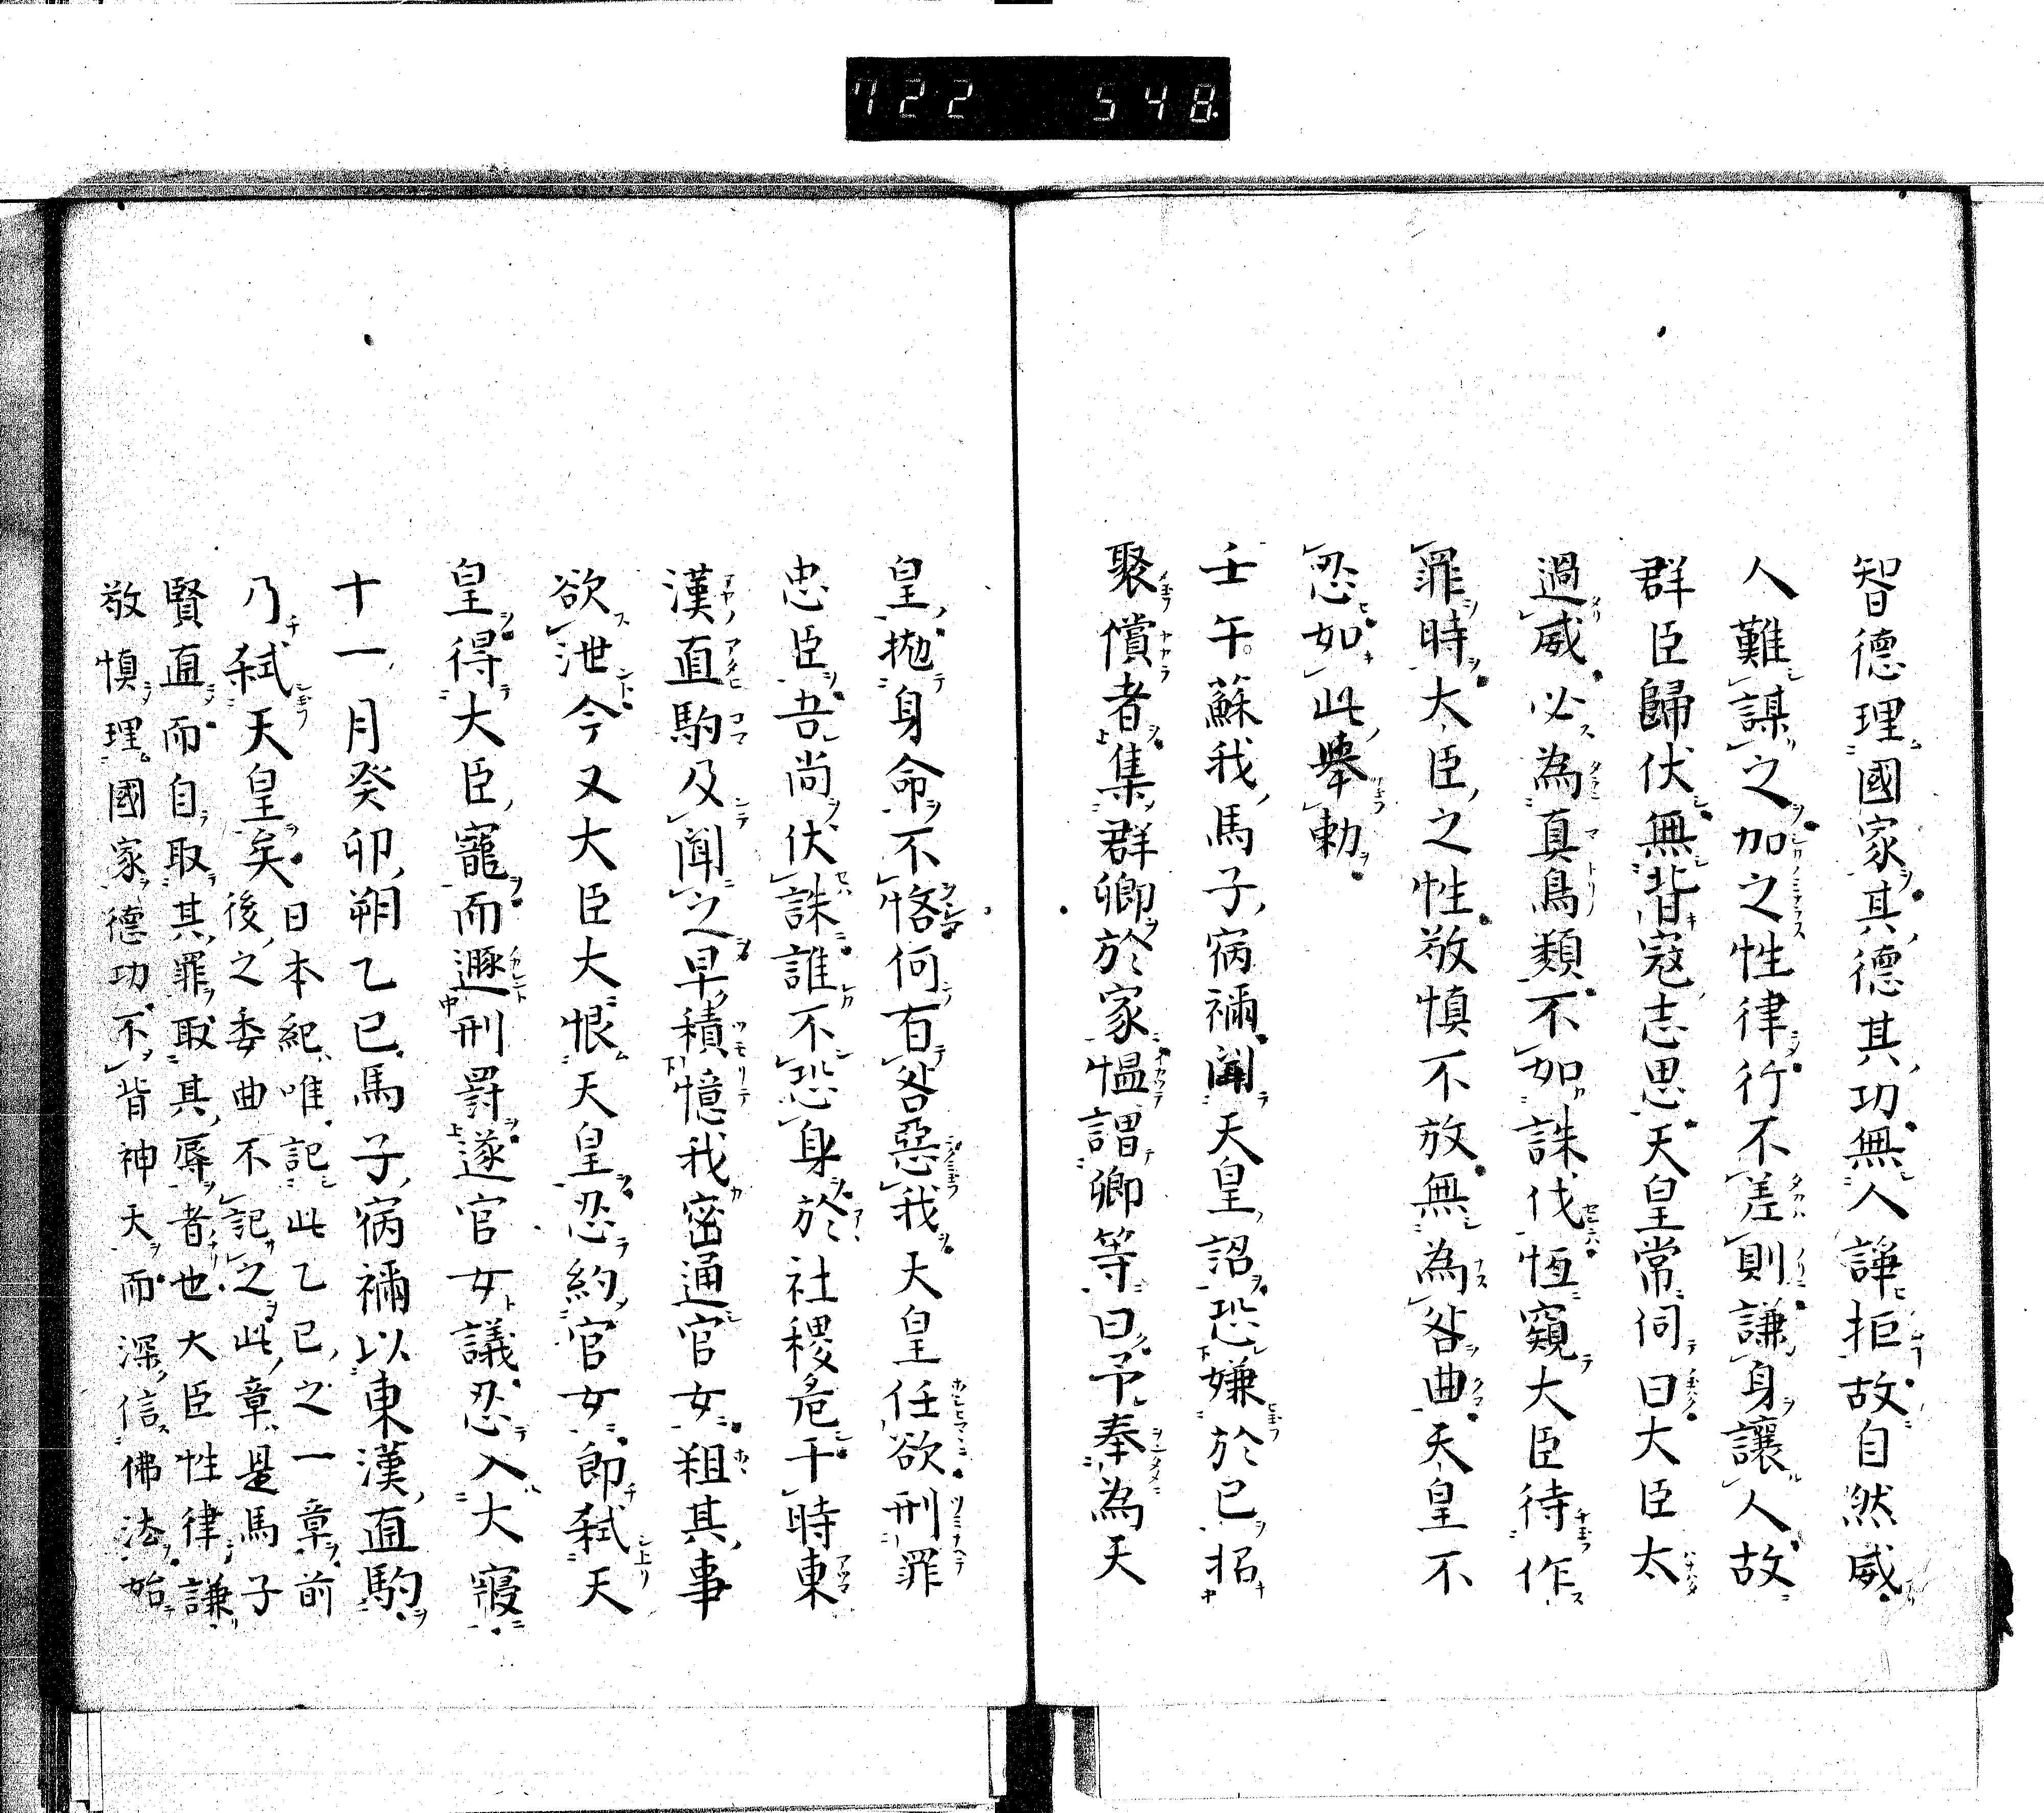 722 548.
智德理國家其德其功無人諍拒故自然威
人難謀之加之性律行不差則謙身讓人故
群臣歸伏無背寇志思天皇常伺曰大臣太
過威必為真鳥類不如誅伐恆窺大臣待作
罪時大臣之性敬慎不放無為咎曲天皇不
忍如此舉勅
壬午蘇我馬子宿禰聞天皇詔恐嫌於已招
聚儻者集群卿於家慍謂卿等曰予奉為天
皇拋身命不悋何有咎惡我天皇任欲刑罪
忠臣吾尚伏誅誰不恐身於社稷危干時東
漢直駒及聞之早積憶我密通官女粗其事
欲泄今又大臣大恨天皇忍約官女即弒天
皇得大臣寵而遯刑罰遂官女議忍入大寢
十一月癸卯朔乙巳馬子宿禰以東漢直駒
乃弒天皇矣
日本紀唯記此乙巳之一章前
後之委曲不記之此章是馬子
賢直而自取其罪取其辱者也大臣性律謙
敬慎理國家德功不背神天而深信佛法始